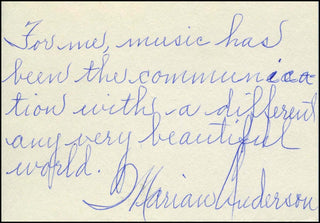 For me, music has
been the communica-
tion with a different
any very beautiful
world.
Marian Anderson